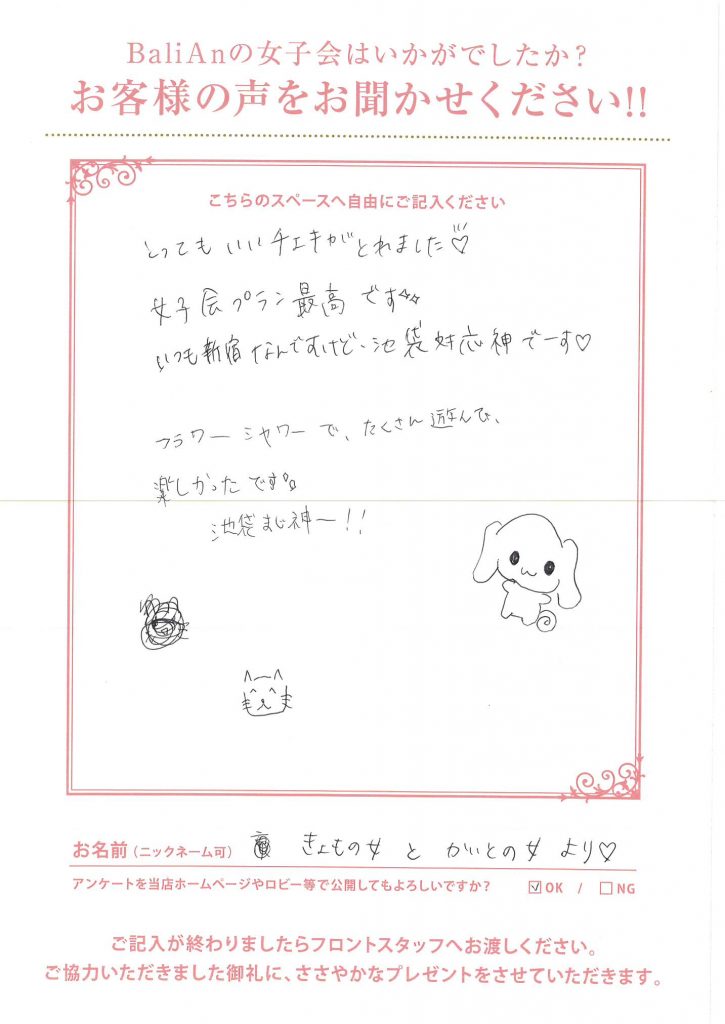 BaliAnの女子会はいかがでしたか?
お客様の声をお聞かせください!!
こちらのスペースへ自由にご記入ください
とってもいいチェキがとれました♡
女子会プラン最高です
いつも新宿なんですけど、池袋対応神でーす♡
フラワーシャワーで、たくさん遊んで、
楽しかったです。
池袋まじ神ー!!
お名前(ニックネーム可) きょもの女 と かいとの女 より♡
アンケートを当店ホームページやロビー等で公開してもよろしいですか? ☑OK / □NG
ご記入が終わりましたらフロントスタッフへお渡しください。
ご協力いただきました御礼に、ささやかなプレゼントをさせていただきます。